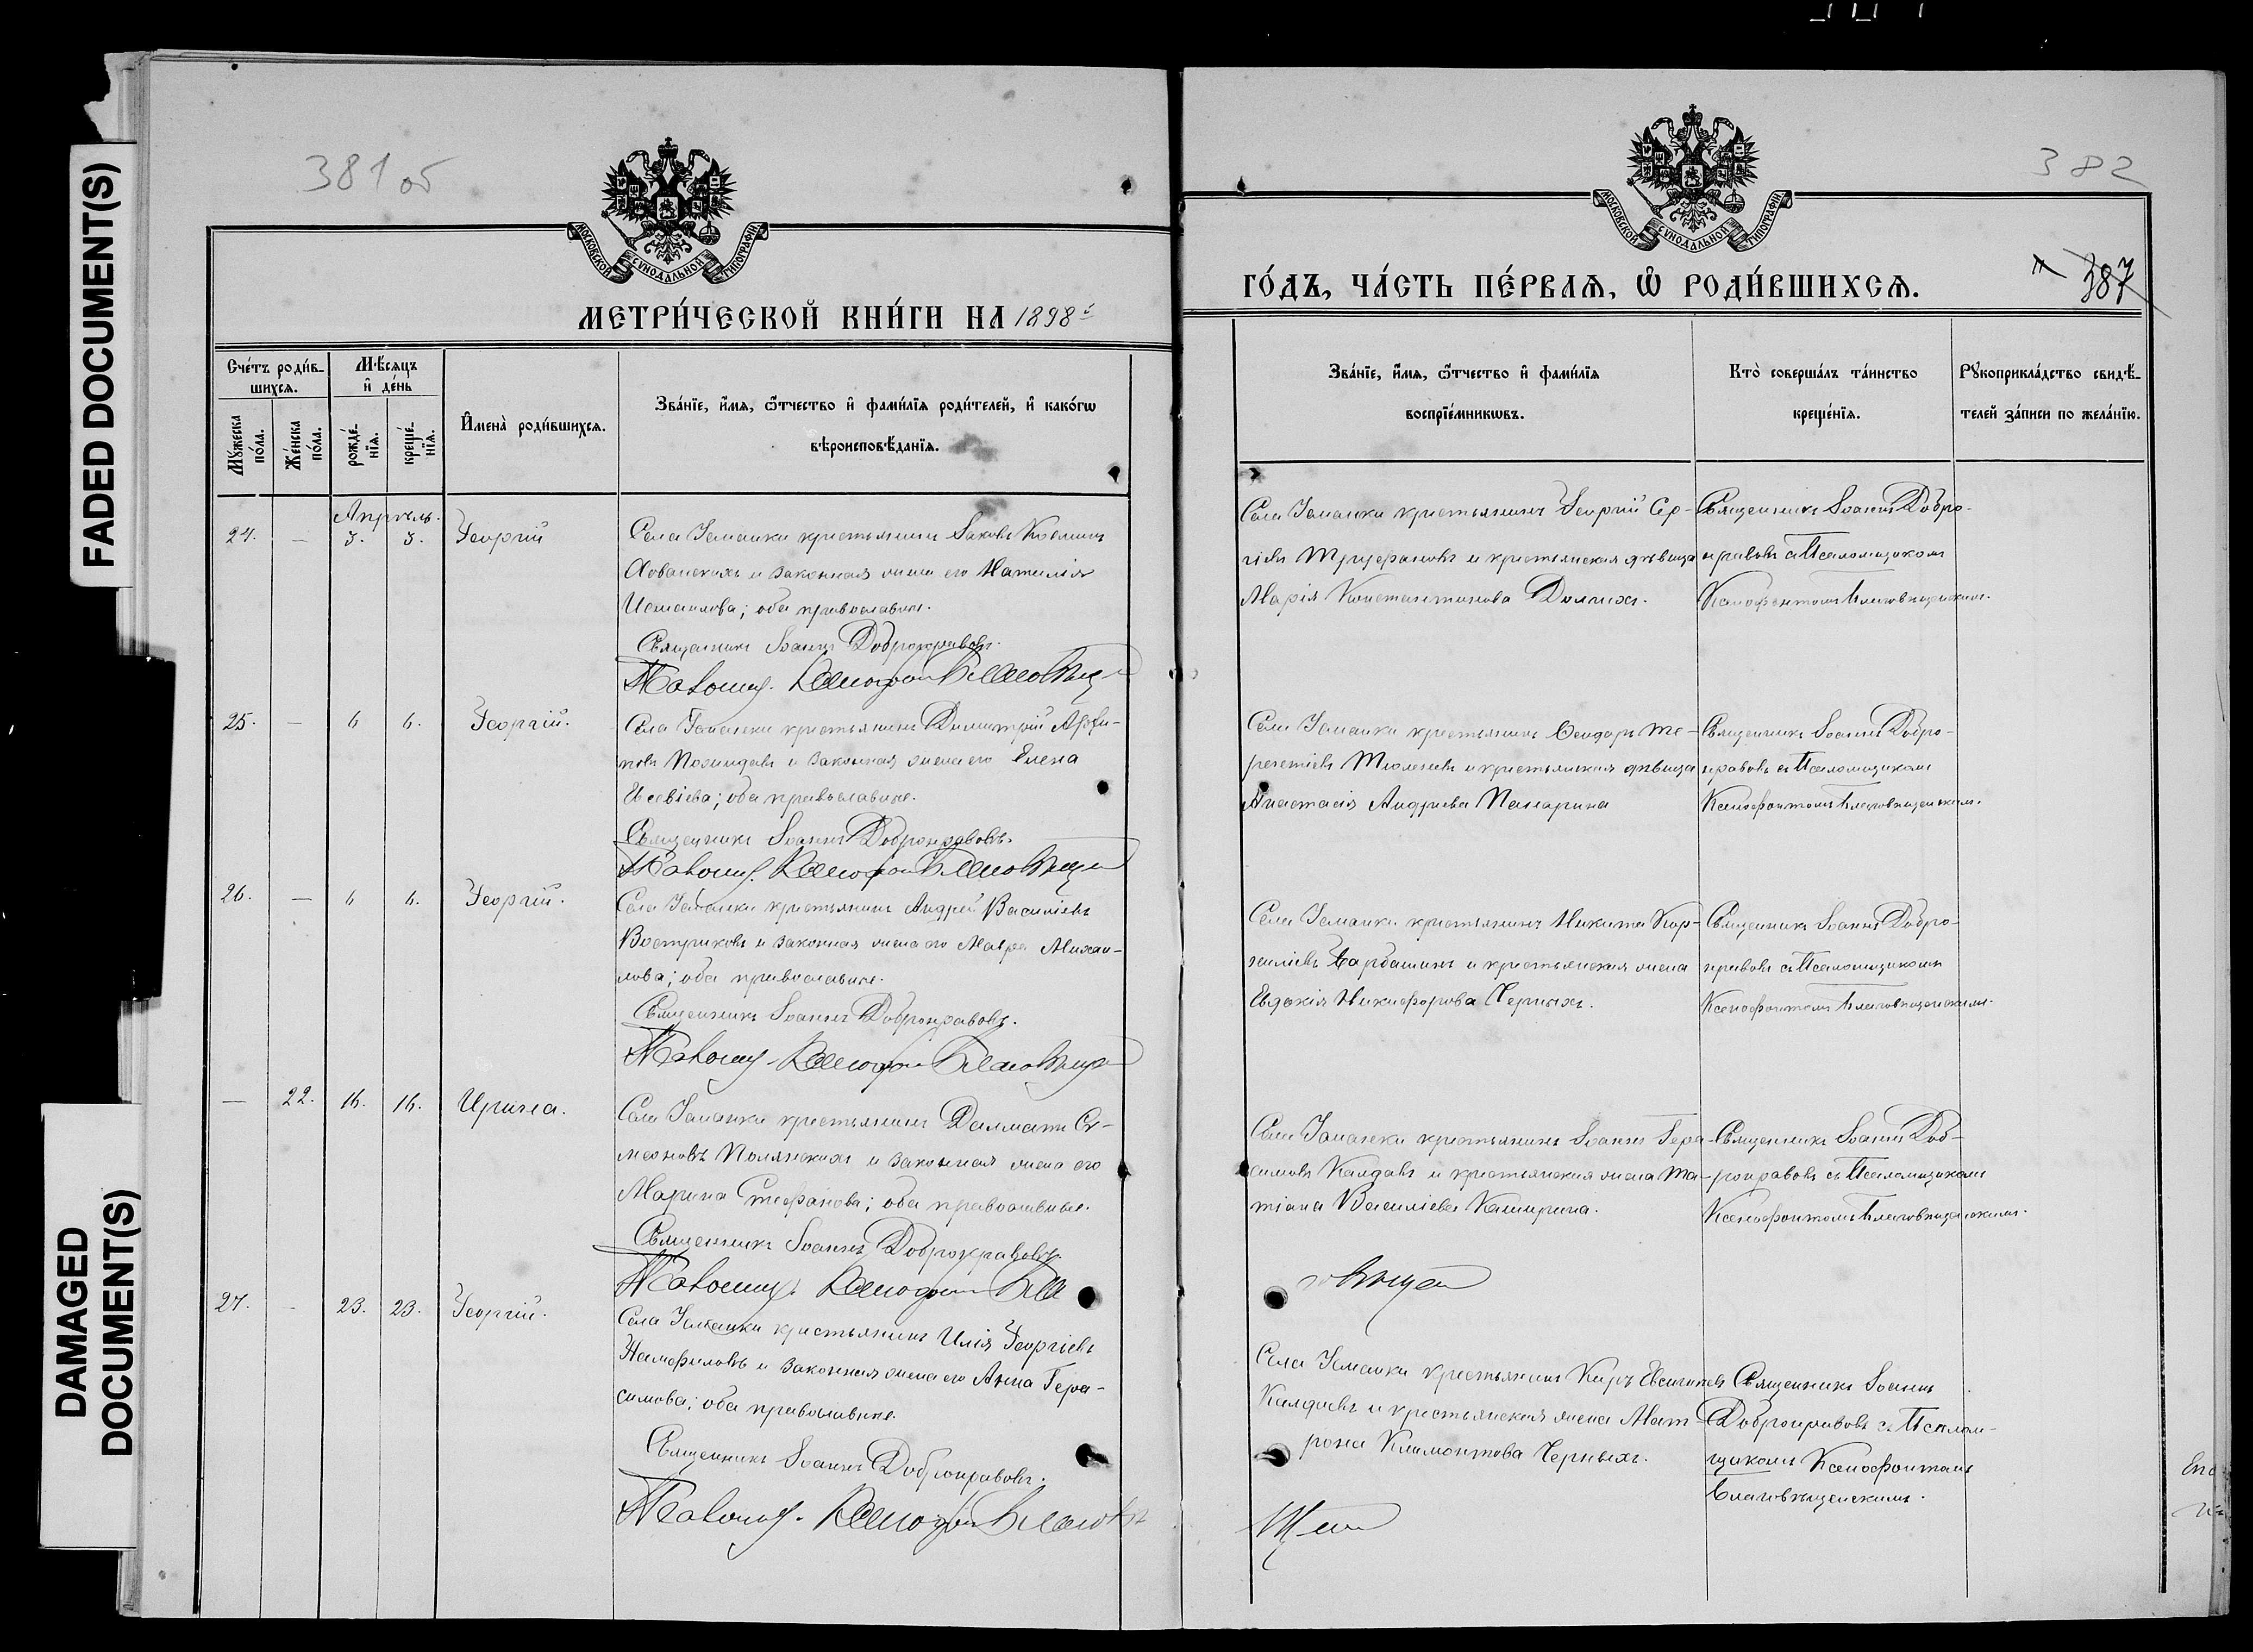 FADED DOCUMENT(S)
DAMAGED DOCUMENT(S)
381 об
382
387
МОСКОВСКОЙ СѴНОДАЛЬНОЙ ТИПОГРАФІИ
МЕТРИ́ЧЕСКОЙ КНИ́ГИ НА 1898й
Сче́тъ роди́в-
шихсѧ.
Мꙋ́жеска по́ла.
Же́нска по́ла.
Мѣ́сѧцъ
и҆ де́нь
рожде́-
нїѧ.
креще́-
нїѧ.
И҆мена̀ роди́вшихсѧ.
Зва́нїе, и҆́мѧ, ѻ҆́тчество и҆ фами́лїѧ роди́телей, и҆ како́гѡ
вѣроисповѣ́данїѧ.
Апрѣль.
24. — 3. 3. Георгій
Села Яманки крестьянинъ Іаковъ Козминъ
и законная жена его Наталія
Исмаилова; оба православные.
Священникъ Іоаннъ Добронравовъ.
Псаломщ. Ксенофон Благовѣщен
25. — 6 6. Георгій.
Села Яманки крестьянинъ Димитрій
и законная жена его Елена
Евсевіева; оба православные.
Священникъ Іоаннъ Добронравовъ.
Псаломщ. Ксенофон Благовѣщен
26. — 6 6. Георгій.
Села Яманки крестьянинъ Андрей Василіевъ
Востриковъ и законная жена его Мавра Михаи-
лова; оба православные.
Священникъ Іоаннъ Добронравовъ.
Псаломщ. Ксенофон Благовѣщен
— 22. 16. 16. Ирина.
Села Яманки крестьянинъ Далматъ Си-
меоновъ Полянскихъ и законная жена его
Марина Стефанова; оба православные.
Священникъ Іоаннъ Добронравовъ.
Псаломщ. Ксенофон Бла
27. - 23. 23. Георгій.
Села Яманки крестьянинъ Илія Георгіевъ
Памфиловъ и законная жена его Анна Гера-
симова; оба православные.
Священникъ Іоаннъ Добронравовъ.
Псаломщ. Ксенофон Благовѣ
ГО́ДЪ, ЧА́СТЬ ПЕ́РВАѦ, Ѡ҆ РОДИ́ВШИХСѦ.
Зва́нїе, и҆́мѧ, ѻ҆́тчество и҆ фами́лїѧ
воспрїе́мникѡвъ.
Кто̀ соверша́лъ та́инство
креще́нїѧ.
Рꙋкоприкла́дство свидѣ́-
телей за́писи по жела́нїю.
Села Яманки крестьянинъ Георгій Сер-
гіевъ Труфановъ и крестьянская дѣвица
Марія Константинова Долгихъ.
Священникъ Іоаннъ Добро-
нравовъ съ Псаломщикомъ
Ксенофонтомъ Благовѣщенскимъ.
Села Яманки крестьянинъ Ѳеодоръ Те-
рентіевъ Тюленевъ и крестьянская дѣвица
Анастасія Андреева Панарина
Священникъ Іоаннъ Добро-
нравовъ съ Псаломщикомъ
Ксенофонтомъ Благовѣщенскимъ.
Села Яманки крестьянинъ Никита Кор-
ниліевъ Барбашинъ и крестьянская жена
Евдокія Никифорова Черныхъ.
Священникъ Іоаннъ Добро-
нравовъ съ Псаломщикомъ
Ксенофонтомъ Благовѣщенскимъ.
Села Яманки крестьянинъ Іоаннъ Гера-
симовъ Калдавъ и крестьянская жена Та-
тіана Василіева Каширина.
Священникъ Іоаннъ Доб-
ронравовъ съ Псаломщикомъ
Ксенофонтомъ Благовѣщенскимъ.
говѣщен
Села Яманки крестьянинъ Киръ
и крестьянская жена Мат-
рона Климонтова Черныхъ.
Священникъ Іоаннъ
Добронравовъ съ Псалом-
щикомъ Ксенофонтомъ
Благовѣщенскимъ.
щен